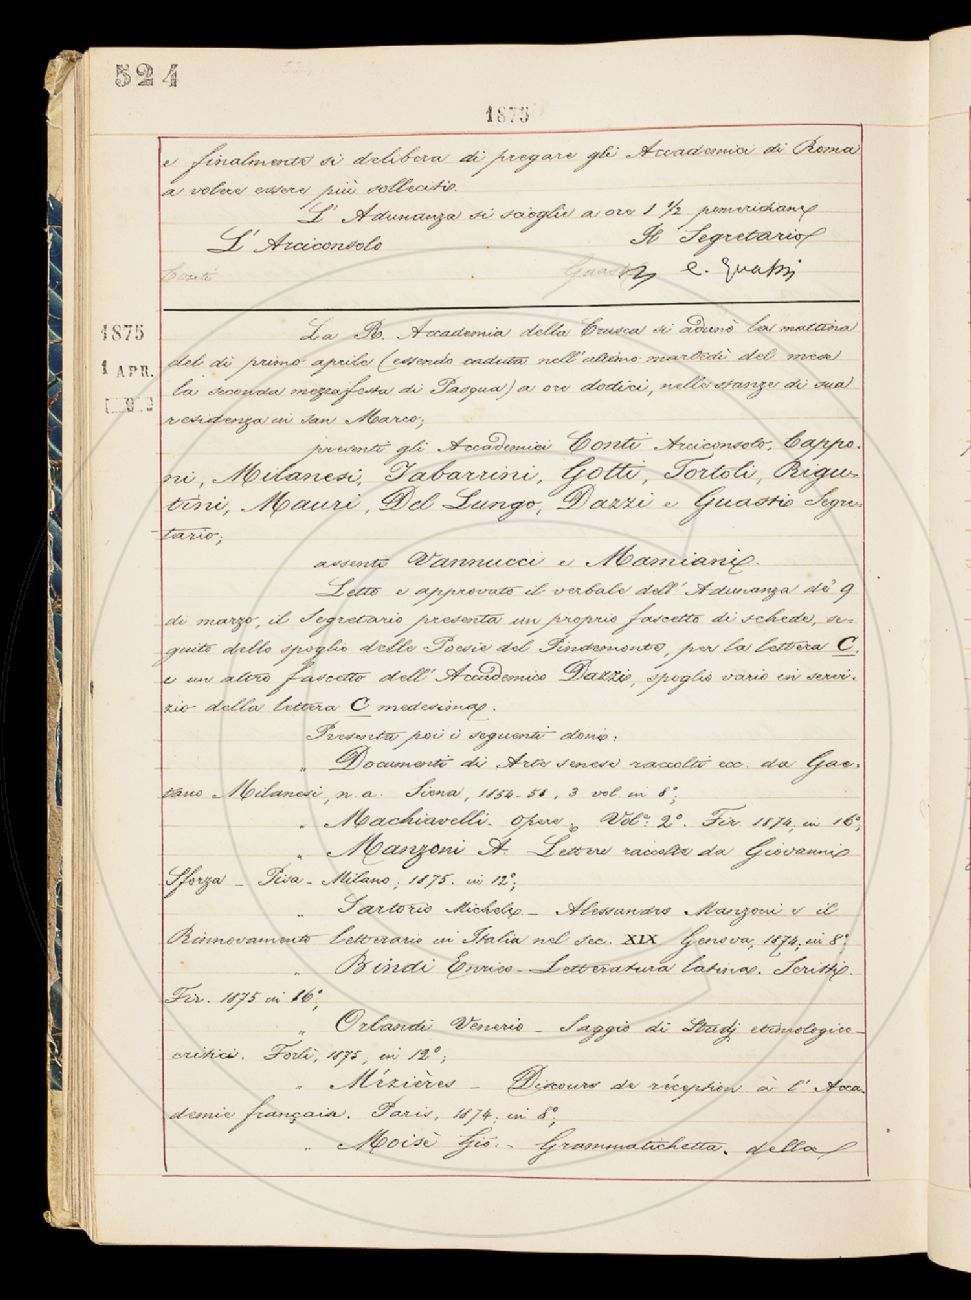 524
1875
e finalmente si delibera di pregare gli Accademici di Roma
a volere essere più solleciti.
L'Adunanza si scioglie a ore 1 1/2 pomeridiane
L'Arciconsolo Il Segretario
Conti Guasti C. Guasti
1875
1 APR.
La R. Accademia della Crusca si adunò la mattina
del dì primo aprile (essendo caduta nell'ultimo martedì del mese
la seconda mezzafesta di Pasqua) a ore dodici, nelle stanze di sua
residenza in San Marco;
presenti gli Accademici Conti Arciconsolo, Cappo-
ni, Milanesi, Tabarrini, Gotti, Tortoli, Rigu-
tini, Mauri, Del Lungo, Dazzi e Guasti Segre-
tario;
assenti Vannucci e Mamiani.
Letto e approvato il verbale dell'Adunanza de' 9
di marzo, il Segretario presenta un proprio fascetto di schede, se-
guito dello spoglio delle Poesie del Pindemonte, per la lettera C.
e un altro fascetto dell'Accademico Dazzi, spoglio vario in servi-
zio della lettera C medesima.
Presenta poi i seguenti doni:
" Documenti di Arte senese raccolti ecc. da Gae-
tano Milanesi, n. a. Siena, 1854-56, 3 vol. in 8°;
" Machiavelli. Opere, Vol.e 2°. Fir. 1874, in 16°;
" Manzoni A. Lettere raccolte da Giovanni
Sforza - Pisa - Milano, 1875. in 12°;
" Sartorio Michele - Alessandro Manzoni e il
Rinnovamento letterario in Italia nel sec. XIX Genova, 1874, in 8°.
" Bindi Enrico - Letteratura latina. Scritti.
Fir. 1875 in 16°;
" Orlandi Venerio - Saggio di Studj etimologico-
critici. Forlì, 1875, in 12°;
" Mézières - Discours de réception à l'Acca-
demie français. Paris, 1874, in 8°;
" Moisè Gio. - Grammatichetta della